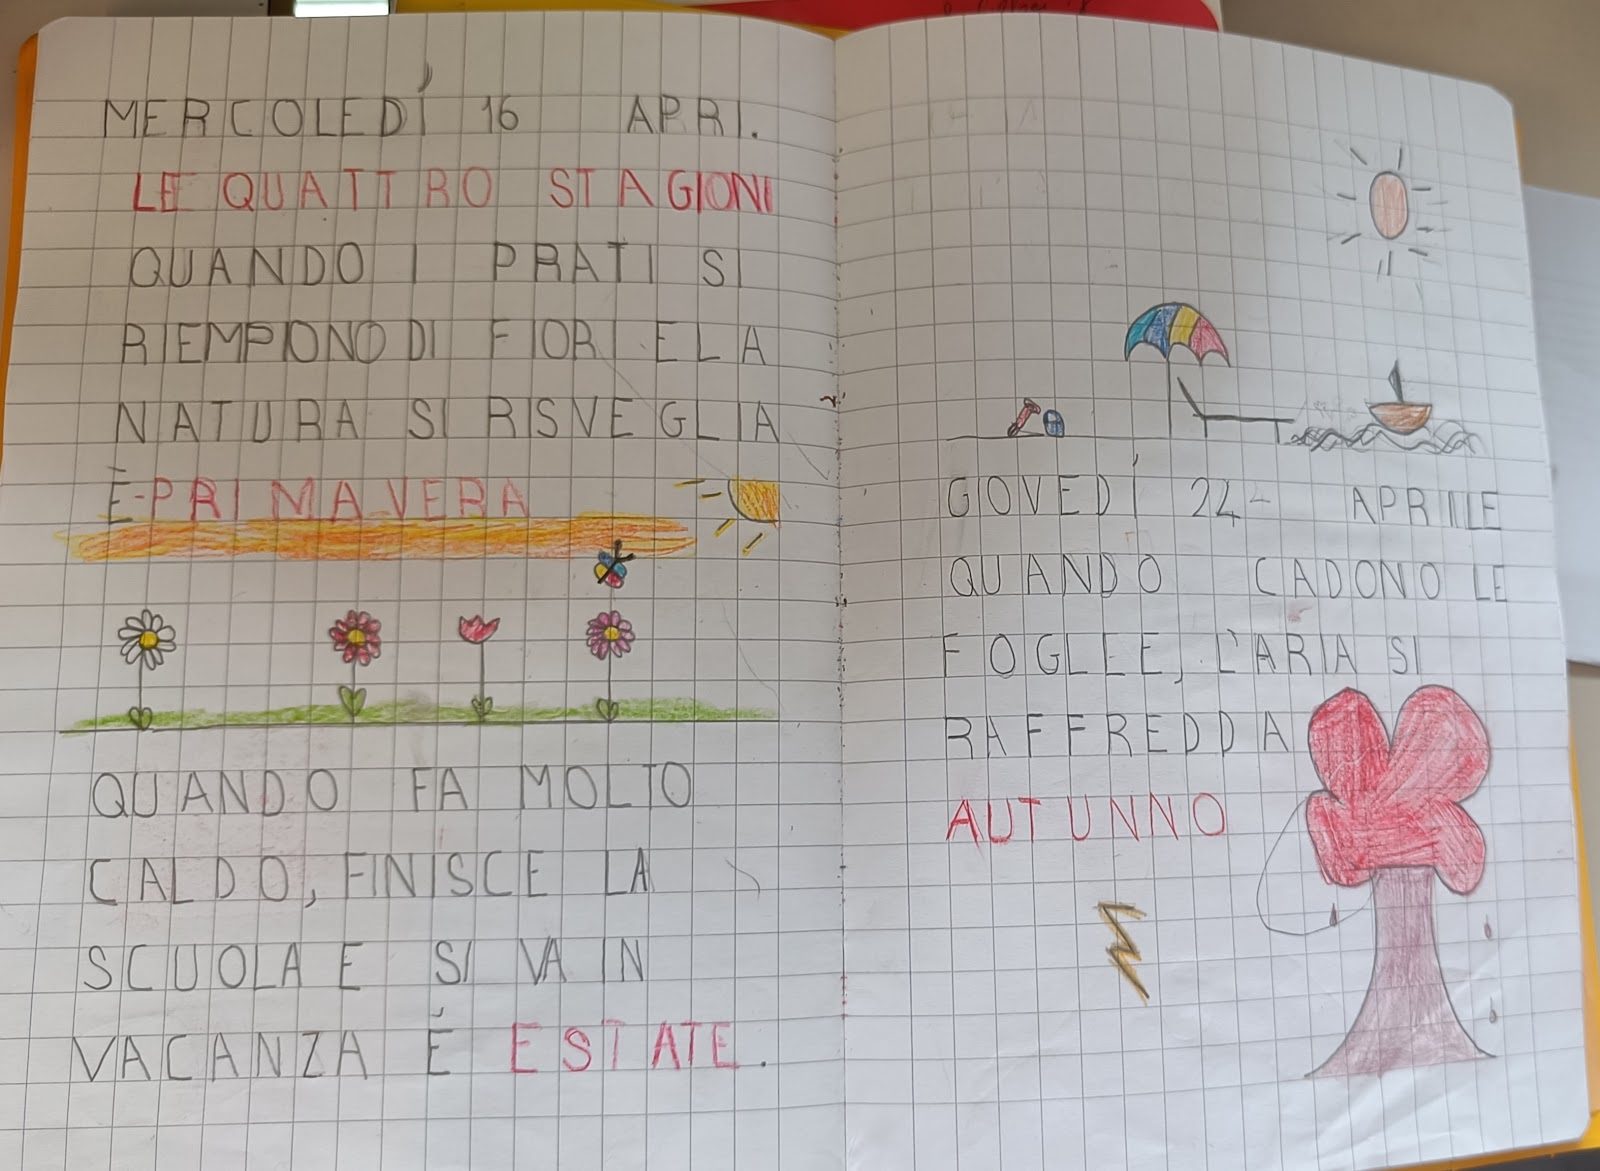 MERCOLEDÌ 16 APRI.
LE QUATTRO STAGIONI
QUANDO I PRATI SI
RIEMPIONO DI FIORI E LA
NATURA SI RISVEGLIA
È-PRIMAVERA
QUANDO FA MOLTO
CALDO, FINISCE LA
SCUOLA E SI VA IN
VACANZA É ESTATE.
GIOVEDÌ 24- APRIILE
QUANDO CADONO LE
FOGLEE, L'ARIA SI
RAFFREDDA
AUTUNNO